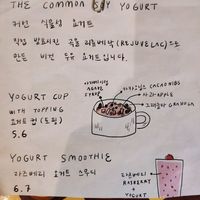 THE COMMON SOY YOGURT
커먼 식물성 요거트
직접 발효시킨 곡물 리쥬베락(REJUVELAC)으로
만든 비건 두유 요거트입니다.
YOGURT CUP
WITH TOPPING
요거트 컵 (토핑)
5.6
아가베시럽
AGAVE
SYRUP
카카오닙스 CACAO NIBS
사과 APPLE
그래놀라 GRANOLA
YOGURT SMOOTHIE
라즈베리 요거트 스무디
6.7
라즈베리
RASPBERRY
+
YOGURT